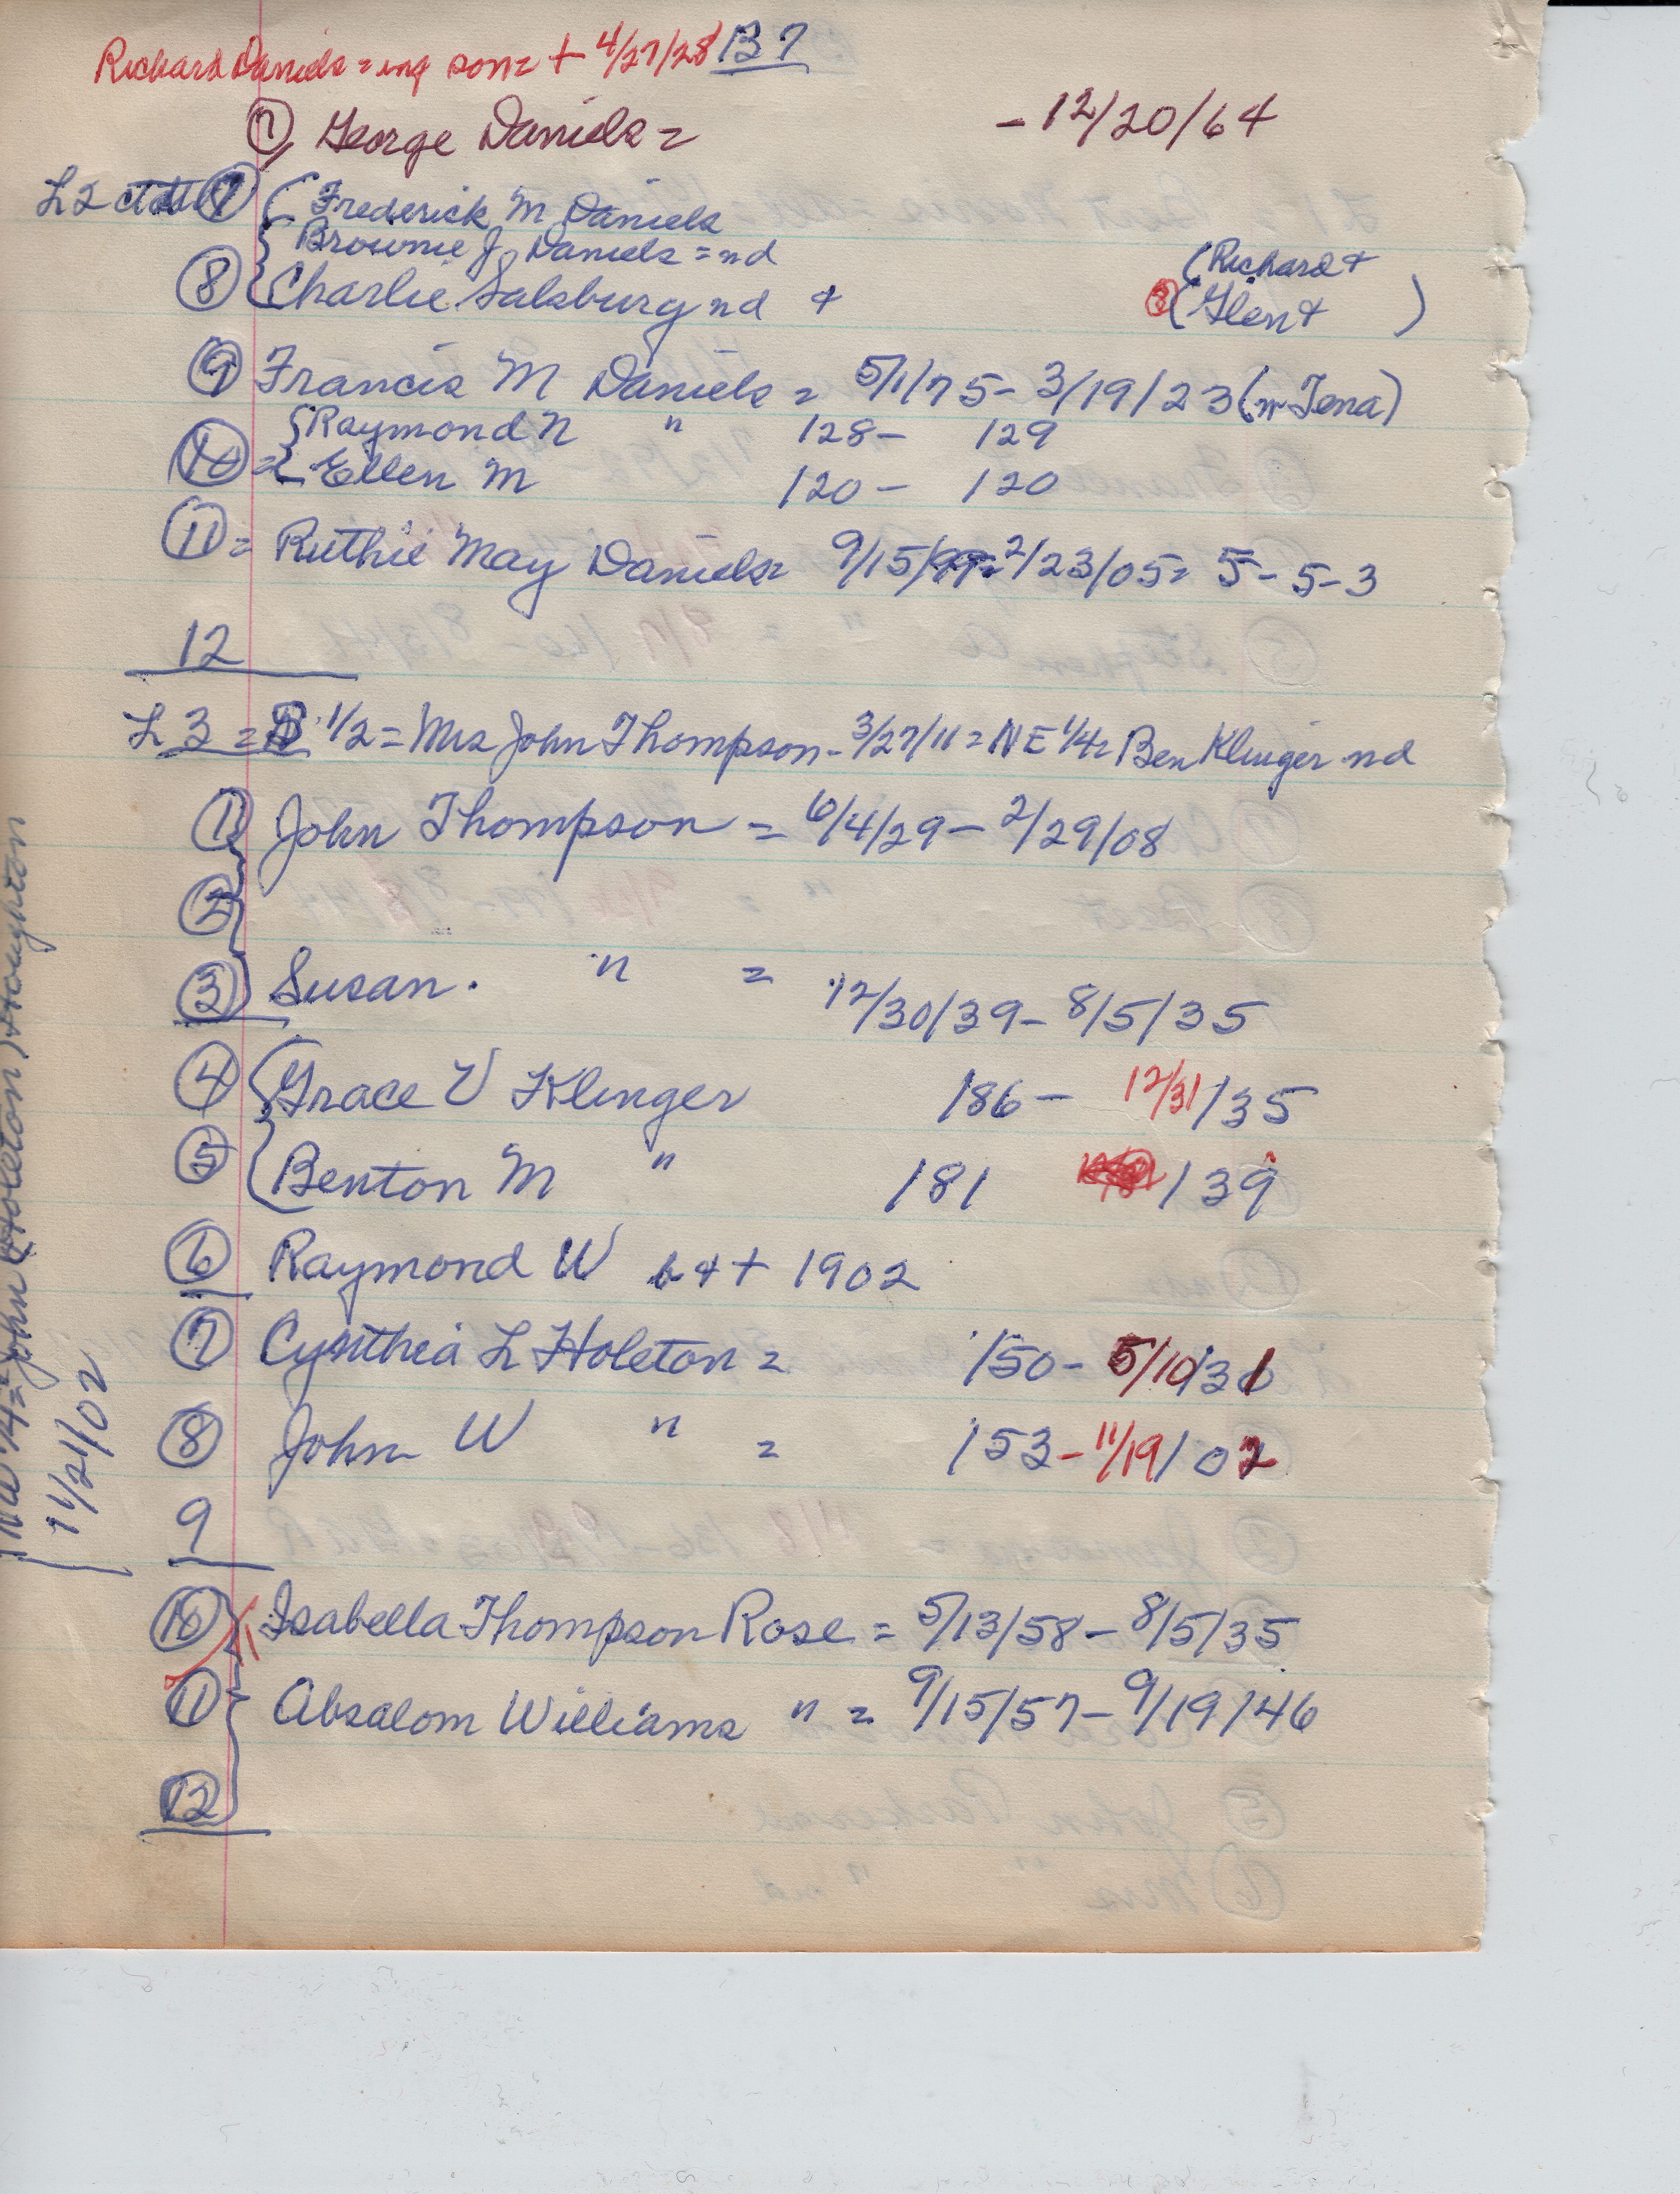 B7
Richard Daniels = inf son = + 4/27/28
7 George Daniels = - 12/20/64
L2 7 Frederick M Daniels
Brownie J Daniels = nd
(Richard +
8 Charlie Salsburg nd + 8 (Glen + )
9 Francis M Daniels = 5/1/75 - 3/19/23 (m Tena)
Raymond N " 128 - 129
10 = Ellen M 120 - 120
11 = Ruthie May Daniels = 9/15/99 = 2/23/05 = 5 - 5 - 3
12
L 3 = S 1/2 = Mrs John Thompson - 3/27/11 = NE 1/4 = Ben Klinger nd
1 John Thompson = 6/4/29 - 2/29/08
2
3 Susan . " = 12/30/39 - 8/5/35
4 Grace V Klinger 186 - 12/31/35
5 Benton M " 181 /39
6 Raymond W b + + 1902
7 Cynthia L Holeton = 150 - 5/10/31
8 John W " = 153 - 11/19/02
9
10 Isabella Thompson Rose = 5/13/58 - 8/5/35
11 Absalom Williams " = 9/15/57 - 9/19/46
12
NW 1/4 = John (Holeton) Houghton
11/21/02